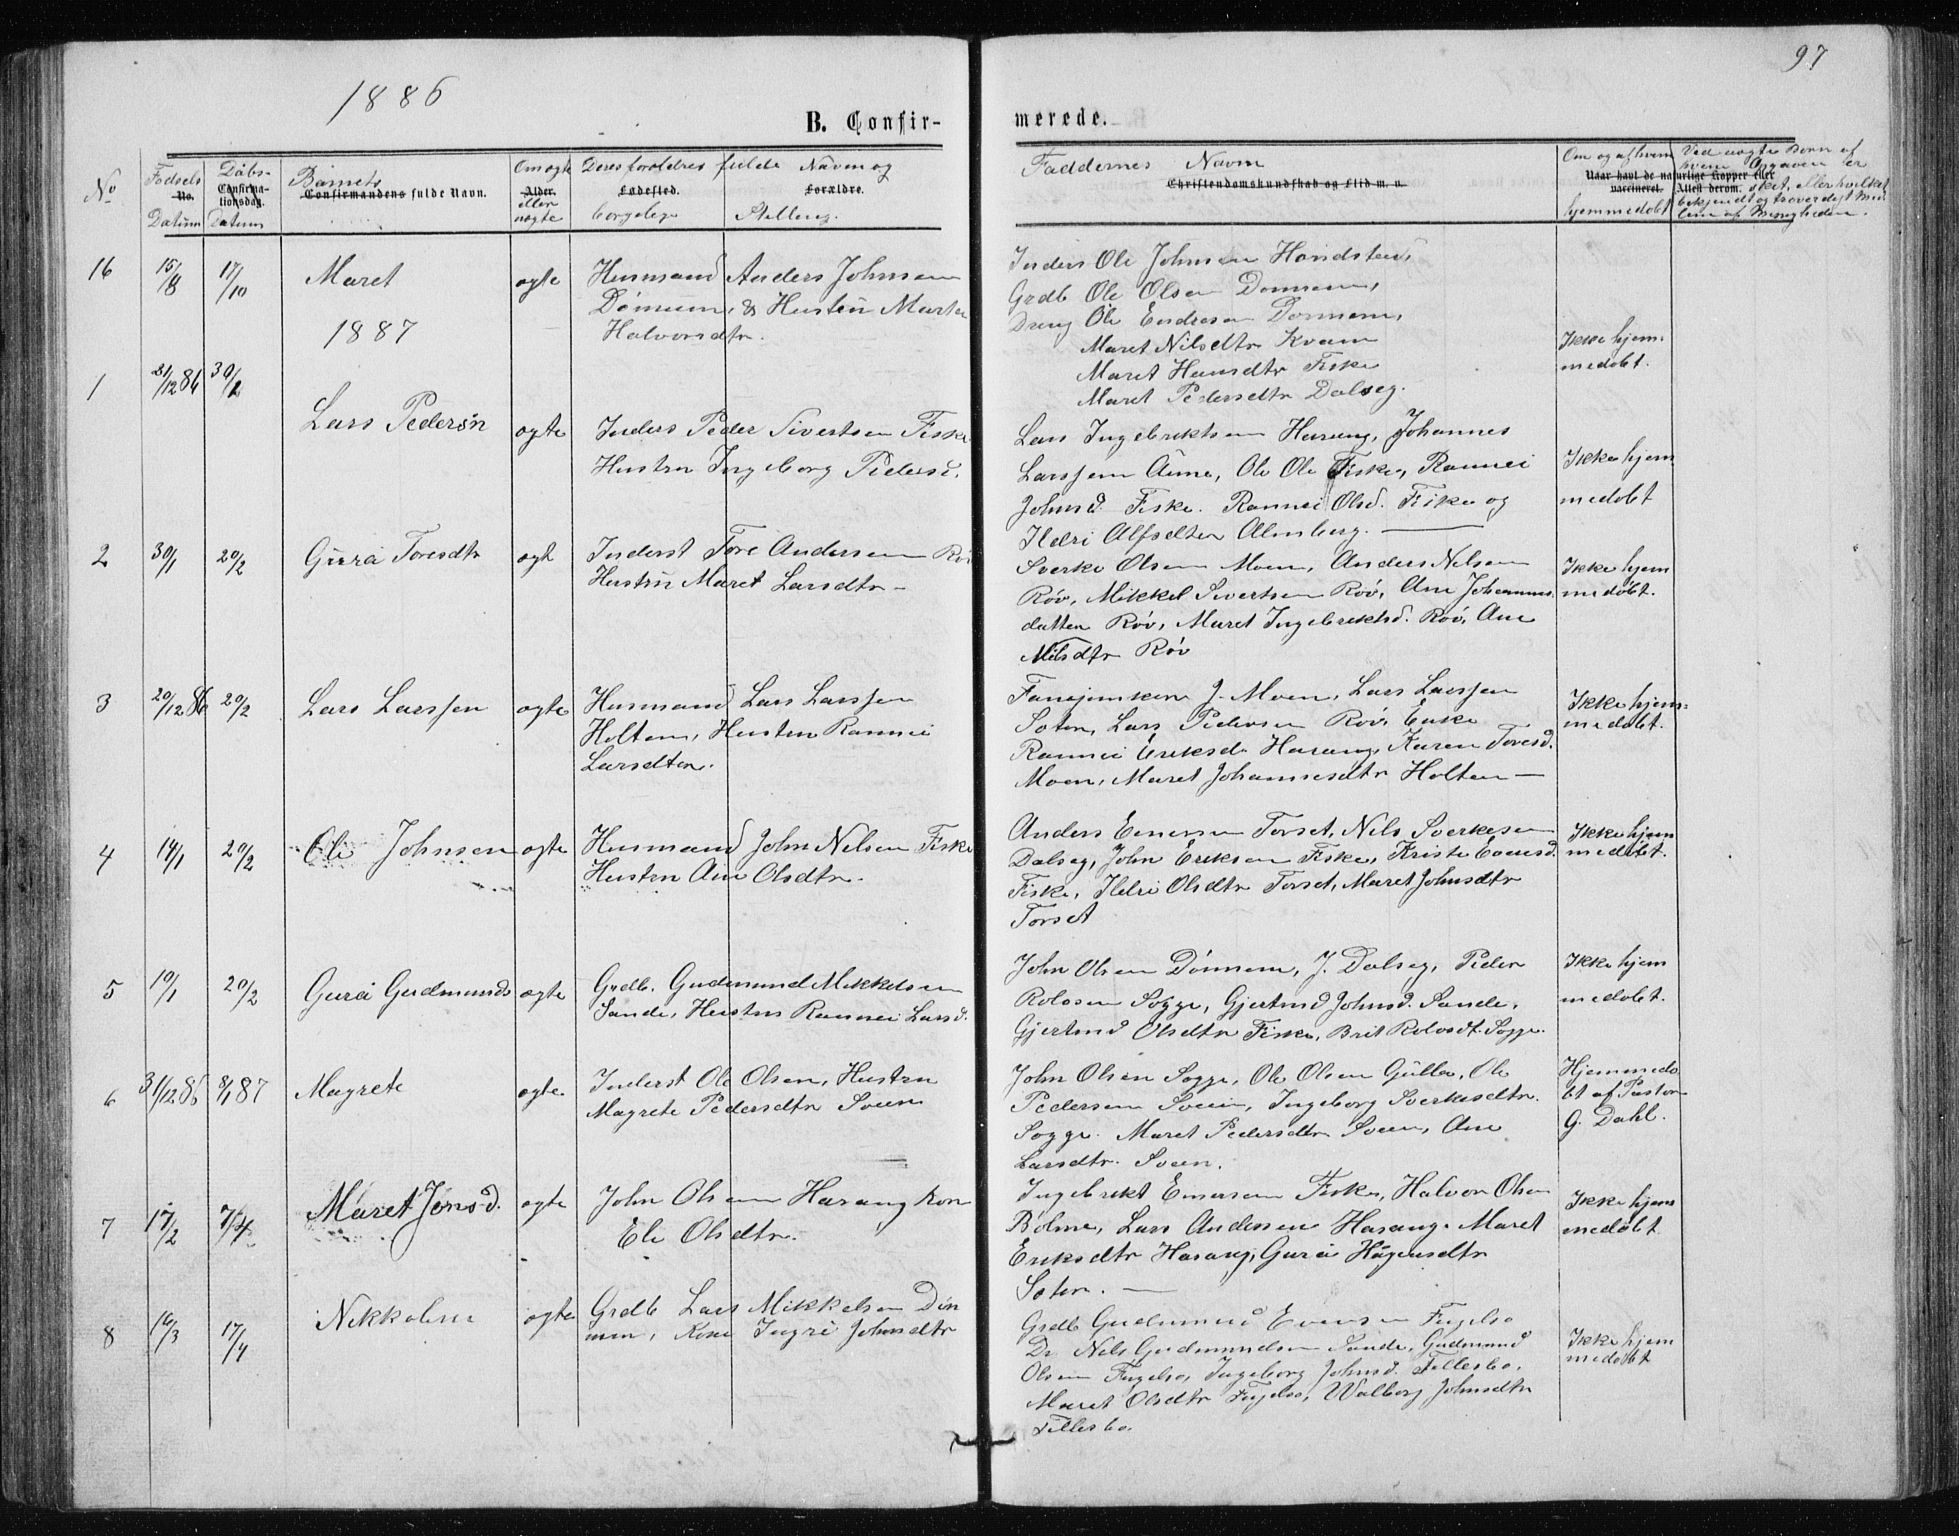 1886
97
B. Confir-
merede.
No
Fødsels
No.
Datum
Dåbs-
Confirma-
tionsdag.
Datum
Barnets
Confirmandens fulde Navn.
Om ægte
Alder.
eller
uægte
Deres forældres fulde Navn og
Fødested. Forældre.
borgelige Stilling.
Faddernes Navn
Christendomskundskab og Flid m. v.
Om og af hvem
Naar havt de naturlige Kopper eller
vaccineret. Attest derom.
hjemmedøbt
Ved uægte Børn af
hvem Opgaven er
sket, eller hvilket
bekjendt og troverdigt Med-
lem af Menigheden.
16 15/8 17/10 Maret ogte Husmand Anders Johnsen
Dønnem, & Hustru Marta
Halvorsdtr.
Inders Ole Johnsen Handsten,
Grdb Ole Olsen Donnem,
Dreng Ole Endresen Donnem,
Maret Nilsdtr Kvam
Maret Hansdtr Fiske
Maret Pedersdtr Dalseg.
Ikke hjem-
medøbt.
1887
1 21/12 86 30/1 Lars Pedersøn ogte Inders Peder Sivertsen Fiske
Hustru Ingeborg Pedersd.
Lars Ingebriktsen Harang, Johannes
Larssen Aune, Ole Ols Fiske, Rannei
Johnsd. Fiske. Rannei Olsd. Fiske og
Ildri Alfsdtr Almberg.
Ikke hjem
medøbt
2 30/1 20/2 Gura Toresdtr ogt Inderst Tore Andersen Røv
Hustru Maret Larsdtr
Sverke Olsen Moen, Anders Nilsen
Røv, Mikkel Sivertsen Røv, Ane Johannes
datter Røv, Maret Ingebriktsd. Røv, Ane
Nilsdtr Røv
Ikke hjem
medøbt.
3 20/12 86 20/2 Lars Larssen ogte Husmand Lars Larssen
Holten, Hustru Rannei
Larsdtr.
Fanejunker J. Moen, Lars Larssen
Soter, Lars Pedersen Røv, Enke
Rannei Eriksd. Harang, Karen Toresd.
Moen, Maret Johannesdtr Holten
Ikke hjem-
medøbt.
4 14/1 20/2 Ole Johnsen ogte Husmand John Nilsen Fiske
Hustru Ane Olsdtr.
Anders Einersen Torset, Nils Sverkesen
Dalseg, John Eriksen Fiske, Kristi Evensd.
Fiske, Ildri Olsdtr Torset, Maret Johnsdtr
Torset
Ikke hjem
medøbt.
5 10/1 20/2 Gura Gudmunds ogte Grdb. Gudmund Mikkelsen
Sande, Hustru Rannei Larsd.
John Olsen Dönnem, J. Dalseg, Peder
Rolosen Sogge, Gjertrud Johnsd. Sande,
Gjertrud Olsdtr Fiske, Brit Rolosdt. Sogge.
Ikke hjem
medøbt.
6 31/12 86 8/1 87 Magrete ogte Inderst Ole Olsen, Hustru
Magrete Pedersdtr Sveen
John Olsen Sogge, Ole Olsen Gulla, Ole
Pedersen Sveen, Ingeborg Sverkesdtr.
Sogge. Maret Pedersdtr Sveen, Ane
Larsdtr. Sveen.
Hjemmedø
bt af Pastor
G. Dahl.
7 17/2 7/4 Maret Jonsd. ogte John Olsen Harang kon
Eli Olsdtr.
Ingebrikt Einersen Fiske, Halvor Olsen
Bolme, Lars Andersen Harang. Maret
Eriksdtr Harang, Gura Hågensdtr
Soter.
Ikke hjem
medøbt
8 16/3 17/4 Nikkoline ogte Grdb Lars Mikkelsen Dön
nem, Kone Ingri Johnsdtr
Grdb Gudmund Evensen Fugelso
Dr. Nils Gudmundsen Sande, Gudmund
Olsen Fugelso, Ingeborg Johnsd. Tellesbo,
Maret Olsdtr Fugelso, Walborg Johnsdtr
Tellesbo.
Ikke hjem
medøbt